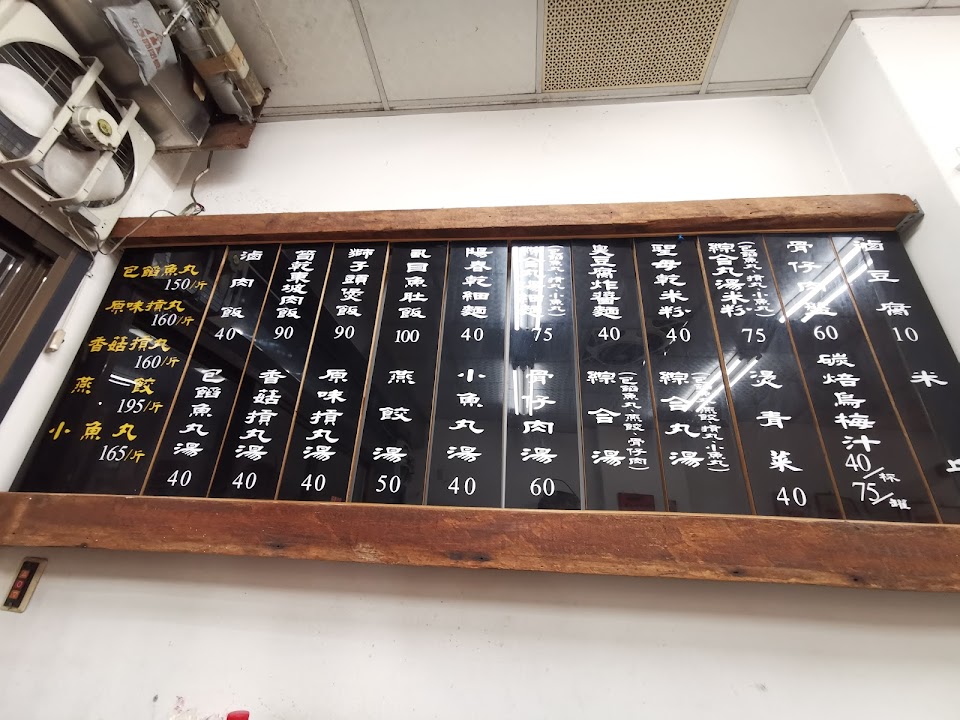 包餡魚丸
150/斤
原味摃丸
160/斤
香菇摃丸
160/斤
燕餃
195/斤
小魚丸
165/斤
滷肉飯
40
包餡魚丸湯
40
筍乾東坡肉飯
90
香菇摃丸湯
40
獅子頭煲飯
90
原味摃丸湯
40
虱目魚肚飯
100
燕餃湯
50
陽春乾細麵
40
小魚丸湯
40
75
骨仔肉湯
60
臭豆腐炸醬麵
40
綜合湯
(包餡魚丸.燕餃.骨仔肉)
聖母乾米粉
40
綜合丸湯
(包餡魚丸.燕餃.摃丸.小魚丸)
綜合丸湯米粉
(包餡魚丸.摃丸.小魚丸)
75
燙青菜
40
骨仔肉飯
60
碳焙烏梅汁
40/杯
75/罐
滷豆腐
10
米